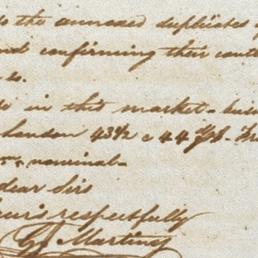 to the annexed duplicate
and confirming their
to.
in this market
London 43½ a 44
nominal
dear Sirs
Yours respectfully
Martiny